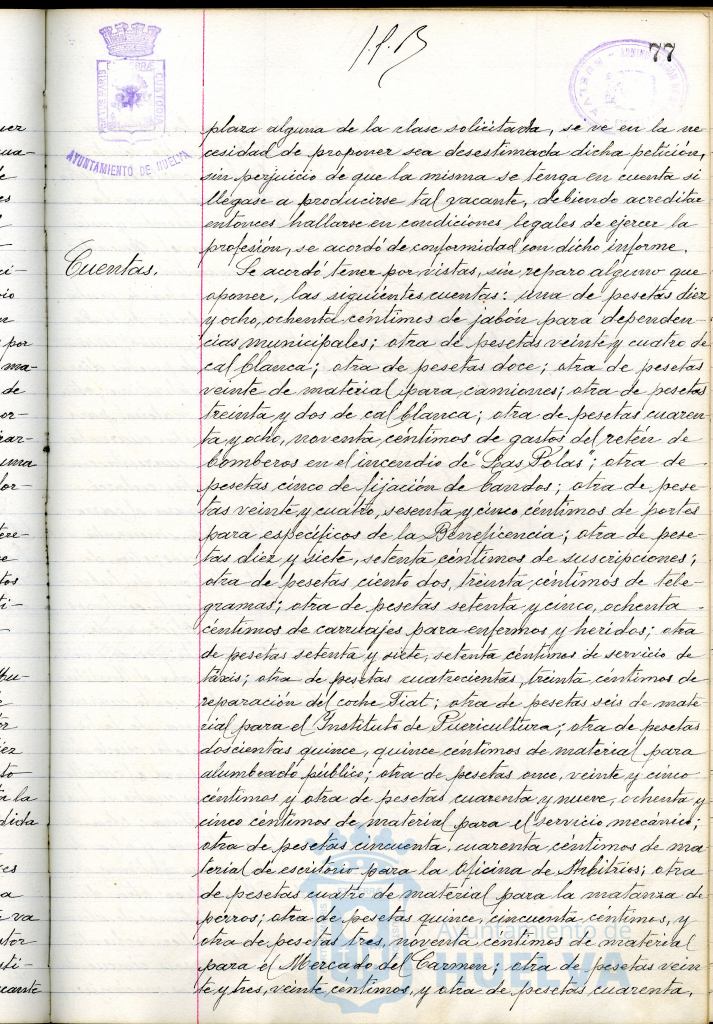 77
AYUNTAMIENTO DE HUELVA
plaza alguna de la clase solicitada, se ve en la ne
cesidad de proponer sea desestimada dicha petición,
sin perjuicio de que la misma se tenga en cuenta si
llegase a producirse tal vacante, debiendo acreditar
entonces hallarse en condiciones legales de ejercer la
profesión, se acordó de conformidad con dicho informe.
Cuentas.
Se acordó tener por vistas, sin reparo alguno que
oponer, las siguientes cuentas: una de pesetas diez
y ocho, ochenta céntimos de jabón para dependen-
cias municipales; otra de pesetas veinte y cuatro de
cal blanca; otra de pesetas doce; otra de pesetas
veinte de material para camiones; otra de pesetas
treinta y dos de cal blanca; otra de pesetas cuaren
ta y ocho, noventa céntimos de gastos del retén de
bomberos en el incendio de "Las Polas"; otra de
pesetas cinco de fijación de bandos; otra de pese-
tas veinte y cuatro, sesenta y cinco céntimos de portes
para específicos de la Beneficencia; otra de pese-
tas diez y siete, setenta céntimos de suscripciones;
otra de pesetas ciento dos, treinta céntimos de tele-
gramas; otra de pesetas setenta y cinco, ochenta
céntimos de carruajes para enfermos y heridos; otra
de pesetas setenta y siete, setenta céntimos de servicio de
táxis; otra de pesetas cuatrocientas, treinta céntimos de
reparación del coche Fiat; otra de pesetas seis de mate-
rial para el Instituto de Puericultura; otra de pesetas
doscientas quince, quince céntimos de material para
alumbrado público; otra de pesetas once, veinte y cinco
céntimos y otra de pesetas cuarenta y nueve, ochenta y
cinco céntimos de material para el servicio mecánico;
otra de pesetas cincuenta, cuarenta céntimos de ma
terial de escritorio para la Oficina de Arbitrios; otra
de pesetas cuatro de material para la matanza de
perros; otra de pesetas quince, cincuenta céntimos, y
otra de pesetas tres, noventa céntimos de material
para el Mercado del Carmen; otra de pesetas vein
te y tres, veinte céntimos, y otra de pesetas cuarenta,
Ayuntamiento de
HUELVA